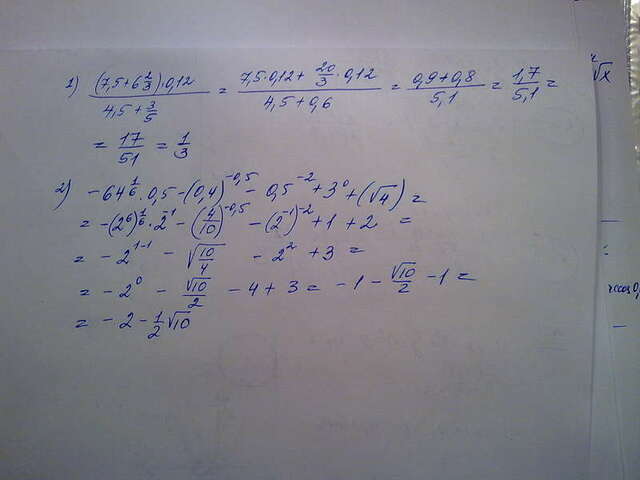 1) (7,5+6 2/3)·0,12 / (4,5+3/5) = (7,5·0,12+20/3·0,12) / (4,5+0,6) = (0,9+0,8) / 5,1 = 1,7/5,1 =
= 17/51 = 1/3
2) -64^(1/6)·0,5-(0,4)^(-0,5) - 0,5^(-2)+3^0+(√4) =
= -(2^6)^(1/6)·2^(-1) - (4/10)^(-0,5) - (2^(-1))^(-2) +1+2 =
= -2^(1-1) - √(10/4) - 2^2 +3 =
= -2^0 - √10/2 - 4+3 = -1 - √10/2 -1 =
= -2-1/2√10
√x